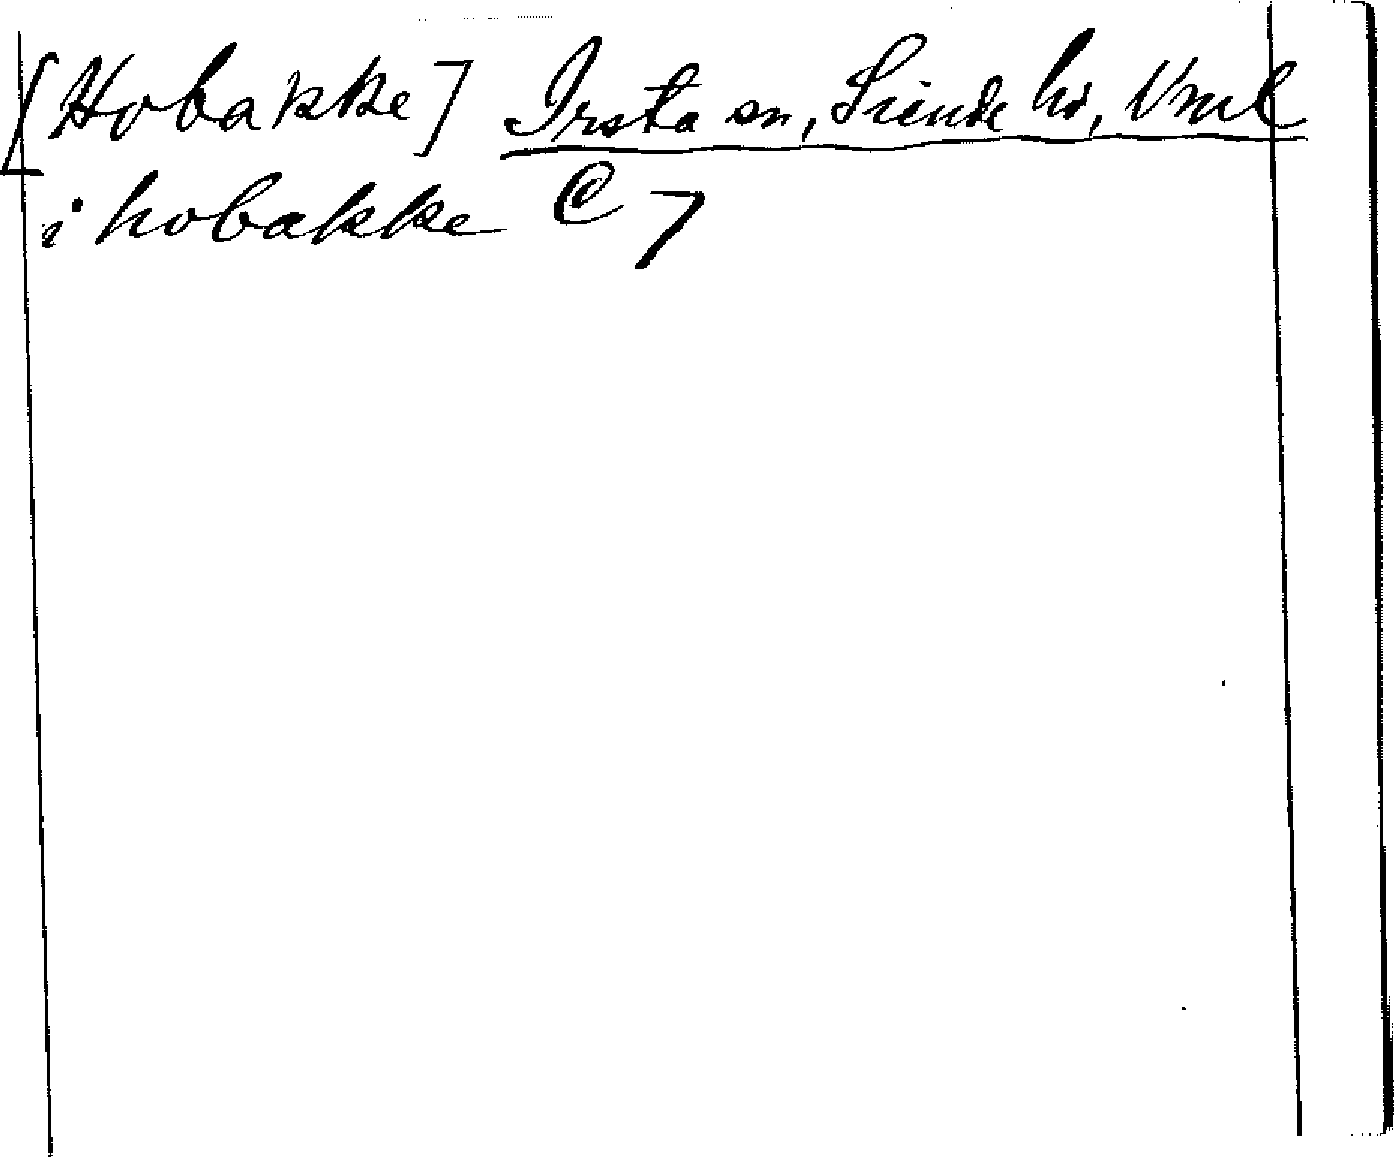 [Hobakke] Irsta sn, Siende hd, Vml
i hobakke C 7